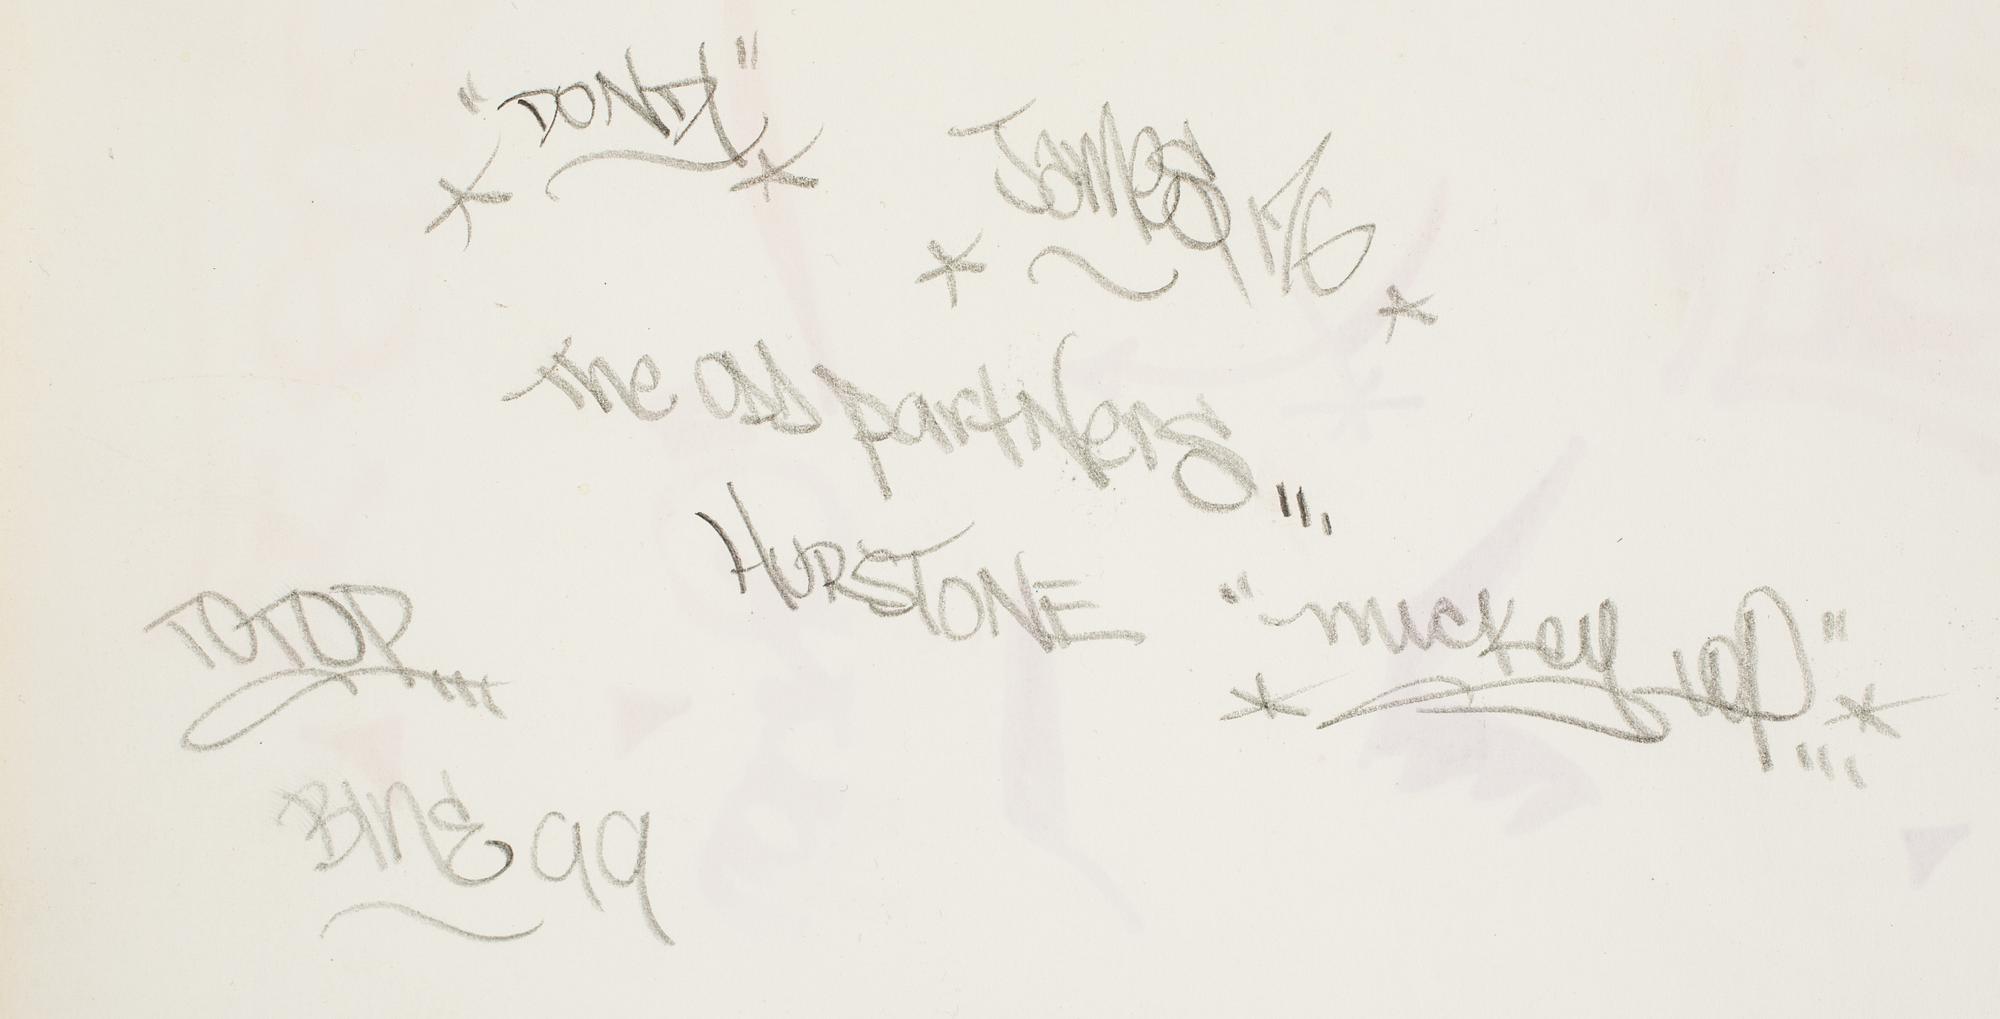 "DONDI"
James 176
The Odd Partners"
HURSTONE
"Mickey
BINE 99